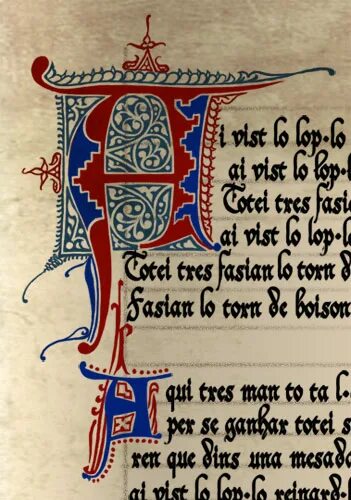 Ai vist lo lop·lo
ai vist lo lop·l
Totei tres fasia
ai vist lo lop·lo
Totei tres fasian lo torn d
Fasian lo torn de boison
Aqui tres man to ta l·
per se ganhar totei s
ren que dins una mesad
ai vist lo lop·lo reinard·